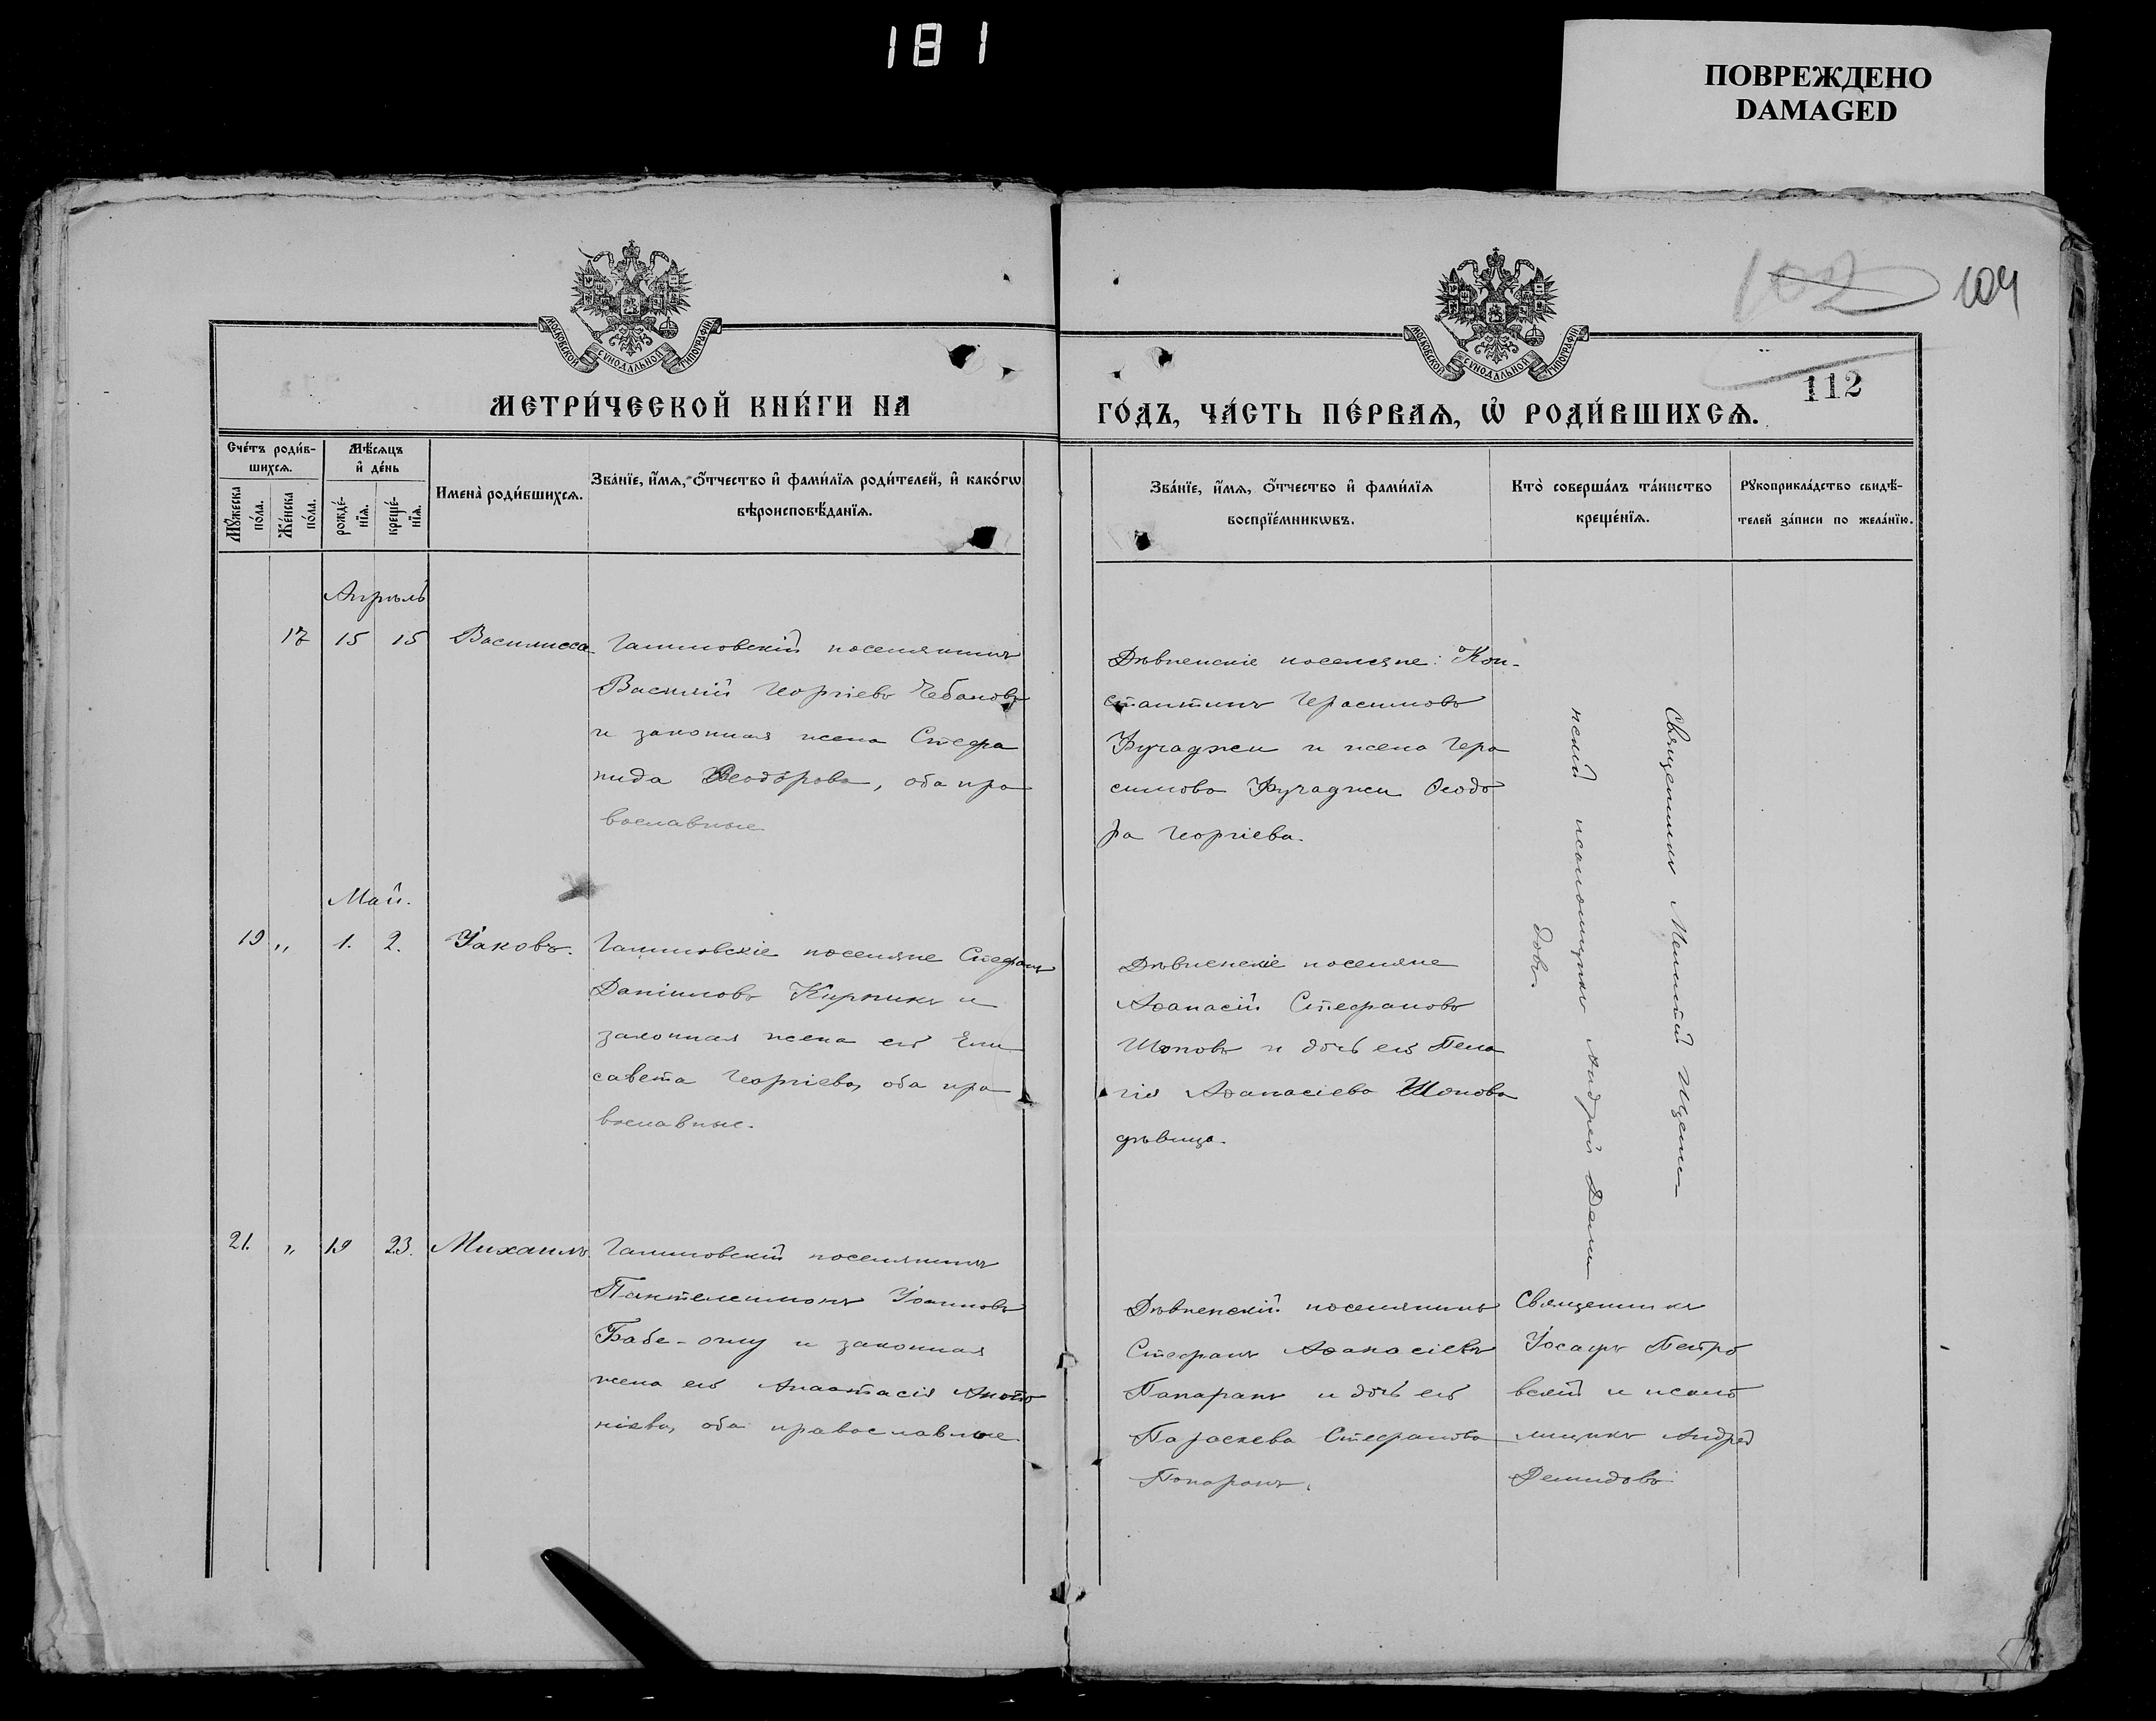 181
ПОВРЕЖДЕНО
DAMAGED
102
104
112
МОСКОВСКОЙ СѴНОДАЛЬНОЙ ТИПОГРАФІИ
МОСКОВСКОЙ СѴНОДАЛЬНОЙ ТИПОГРАФІИ
МЕТРИ́ЧЕСКОЙ КНИ́ГИ НА
ГО́ДЪ, ЧА́СТЬ ПЕ́РВАѦ, Ѡ҆ РОДИ́ВШИХСѦ.
Сче́тъ роди́в-
шихсѧ.
Мѣ́сѧцъ
и҆ де́нь
Мꙋ́жеска
по́ла.
Же́нска
по́ла.
рожде́-
нїѧ.
креще́-
нїѧ.
Имена̀ роди́вшихсѧ.
Зва́нїе, и҆́мѧ, ѻ҆́тчество и҆ фами́лїѧ роди́телей, и҆ како́гѡ
вѣроисповѣ́данїѧ.
Зва́нїе, и҆́мѧ, ѻ҆́тчество и҆ фами́лїѧ
воспрїе́мникѡвъ.
Кто̀ соверша́лъ та́инство
креще́нїѧ.
Рꙋкоприкла́дство свидѣ́-
телей за́писи по жела́нїю.
Апрѣль
17 15 15 Василисса
Василий Георгіевъ Чебановъ
и законная жена Стефа
нида Ѳеодорова, оба пра
вославные
Дѣвненскіе поселяне: Кон-
стантинъ Герасимовъ
Фучаджи и жена Гера
симова Фучаджи Ѳеодо
ра Георгіева.
Священникъ Мелетій
псаломщикъ Андрей Деми
довъ.
Май.
19 „ 1. 2. Іаковъ.
поселяне Стефанъ
Даніиловъ Кирникъ и
законная жена его Ели
савета Георгіева, оба пра
вославные.
Дѣвненскіе поселяне
Аѳанасій Стефановъ
Шоповъ и дочь его Пела
гія Аѳанасіева Шопова
дѣвица.
21. „ 19 23. Михаилъ.
поселянинъ
Пантелеимонъ Іоанновъ
Бабе-оглу и законная
жена его Анастасія Анто
ніева, оба православные.
Дѣвненскій поселянинъ
Стефанъ Аѳанасіевъ
Папаранъ и дочь его
Параскева Стефанова
Папаранъ.
Священникъ
Іосафъ Петро
вскій и псало
мщикъ Андрей
Демидовъ